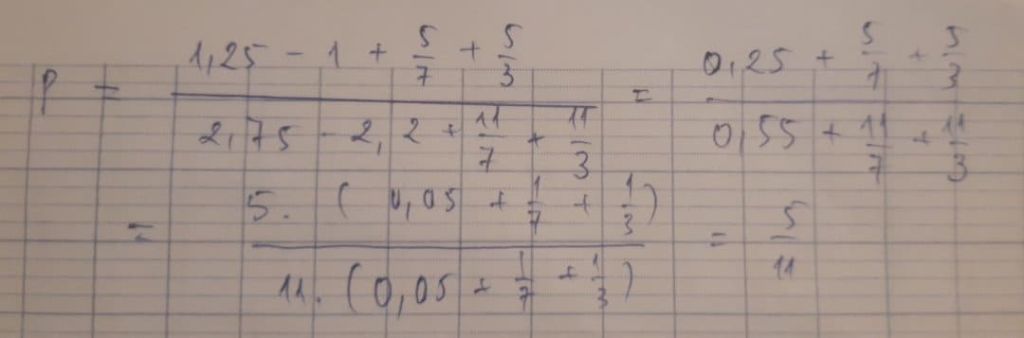 P = (1,25 - 1 + 5/7 + 5/3) / (2,75 - 2,2 + 11/7 + 11/3) = (0,25 + 5/7 + 5/3) / (0,55 + 11/7 + 11/3)
= 5. (0,05 + 1/7 + 1/3) / 11. (0,05 + 1/7 + 1/3) = 5/11